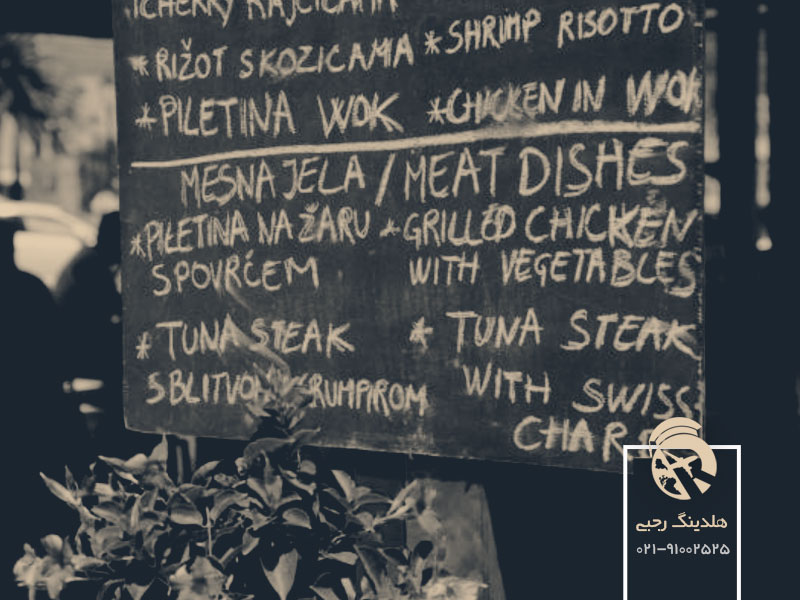 CHERRY RAJČICAMA
*RIŽOT S KOZICAMA *SHRIMP RISOTTO
*PILETINA WOK *CHICKEN IN WOK
MESNA JELA / MEAT DISHES
*PILETINA NA ŽARU *GRILLED CHICKEN
S POVRĆEM WITH VEGETABLES
*TUNA STEAK * TUNA STEAK
S BLITVOM KRUMPIROM WITH SWISS
CHAR
هلدینگ رجبی
۰۲۱-۹۱۰۰۲۵۲۵